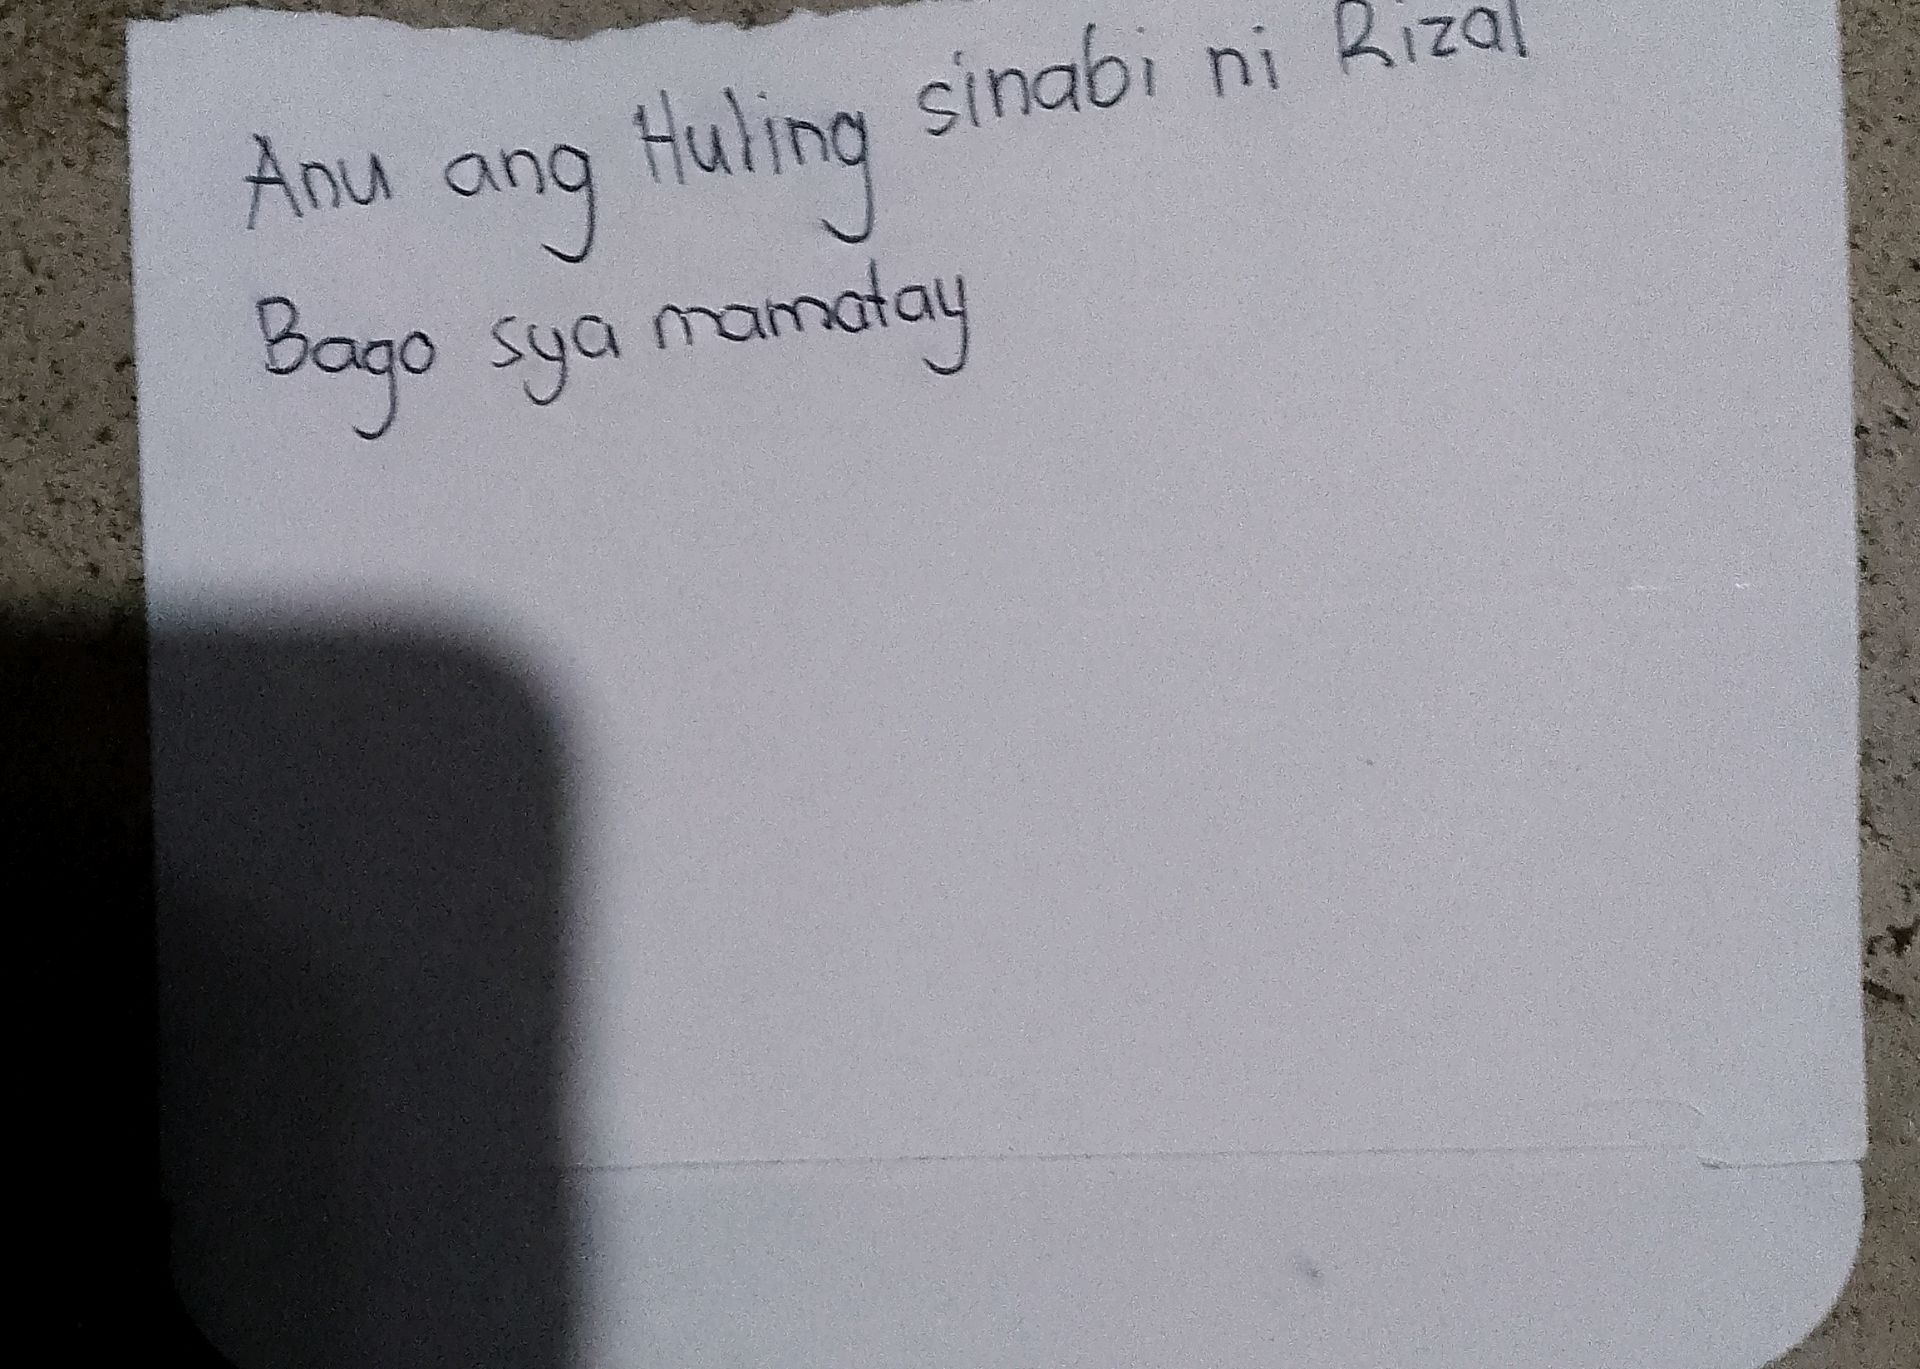 Anu ang Huling sinabi ni Rizal
Bago sya mamatay